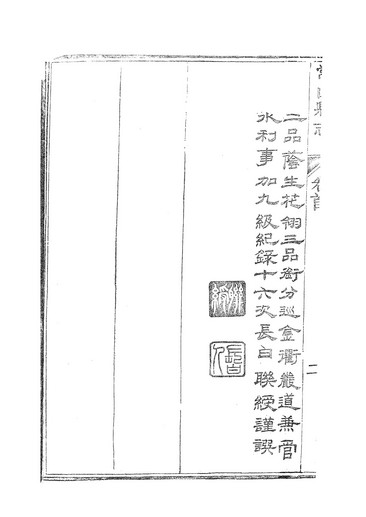 二品蔭生花翎三品銜分巡金衢嚴道兼管
水利事加九級紀錄十六次長白聯綬謹譔
聯綬
卷首
二